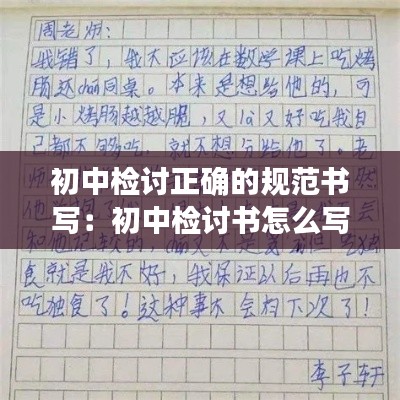 周老师:
我错了,我不应该在数学课上吃烤
肠还chan同桌。本来是想给他的,可
是小烤肠越越脆,又la又好吃我自
己都不够吃,就不想分给他了。老
初中检讨正确的规范书
写:初中检讨书怎么写
和他
食就是我不好,我保证以后再也不
吃独食了!这种事不会有下次了!
李子轩